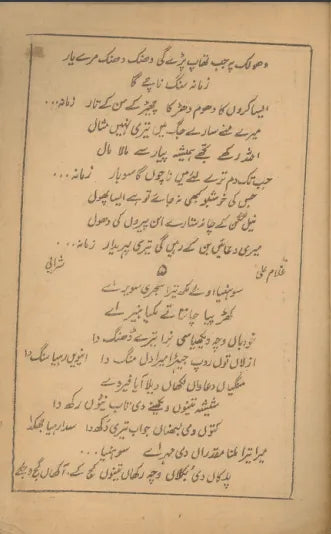 ڈھولک پر جب تھاپ پڑے گی دھنک دھنک مرے یار
زمانہ سنگ ناچے گا
ایسا کروں گا دھوم دھڑکا چھیڑ کے من کے تار زمانہ...
میرے مٹھے سارے جگ میں تیری نہیں مثال
اللہ رکھے تجھے ہمیشہ پیار سے مالا مال
جب تک دم ترے لئے میں ناچوں گا سو بار زمانہ...
جس کی خوشبو کبھی نہ جائے تو ہے ایسا پھول
نیل گگن کے چاند ستارے ان پیروں کی دھول
میری دعائیں بن کے رہیں گی تیری پہریدار زمانہ...
غلام علی ۵ شرابی
سوہنیا او لے مکھ تیرا سجری سویر اے
کھڑ پیا چاننا تے مکیا ہنیر اے
توہیاں وچہ دیکھیا سی نرا تیرے ڈھنگ دا
ازلاں توں روپ جیہڑا میرا دل منگ دا انیویں رہیا سنگ دا
منگیاں دعاواں لکھاں دبلا آیا فیر وے
شیشہ تینوں ویکھنے دی تاب نیئوں رکھ دا
کتوں وی لبھناں جواب تیری دکھ دا سدا رہیا بھکدا
میرا تیرا ملنا مقدراں دی مہر اے سوہنیا...
پلکاں دی بُکلاں وچہ رکھاں تینوں کج کے، آکھاں گج وج کے